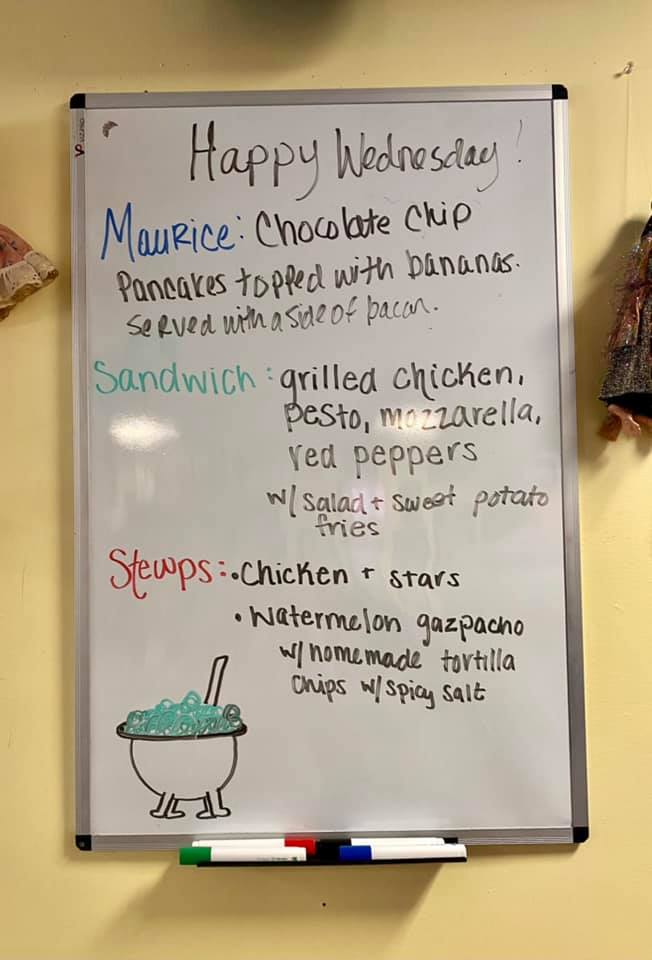 Happy Wednesday!
Maurice: Chocolate Chip
Pancakes topped with bananas.
served with a side of bacon.
Sandwich: grilled chicken,
pesto, mozzarella,
red peppers
w/ salad + sweet potato
fries
Stewps: • Chicken + stars
• Watermelon gazpacho
w/ homemade tortilla
chips w/ spicy salt